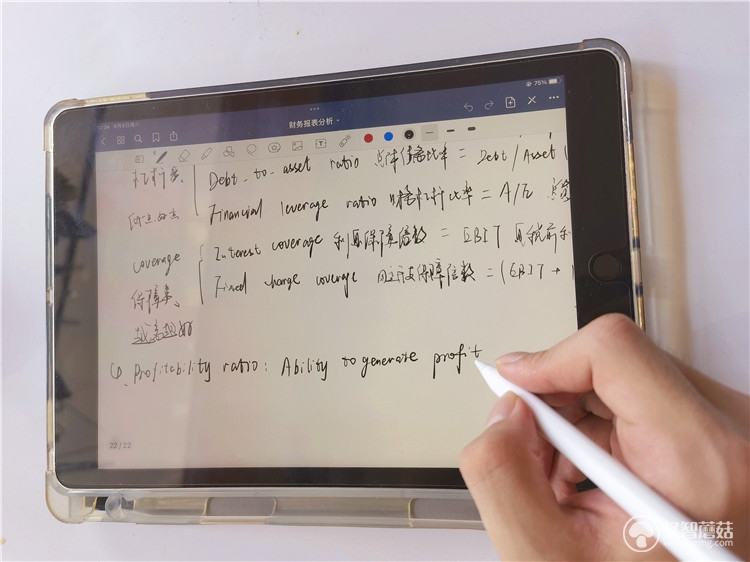 75%
财务报表分析
杠杆率
Debt-to-asset ratio 总体债务比率 = Debt/Asset (
Financial leverage ratio 财务杠杆比率 = A/E
coverage
Interest coverage 利息保障倍数 = EBIT 息税前利
保障率、
Fixed charge coverage 固定支保障倍数 = (EBIT +
越高越好
Profitability ratio: Ability to generate profit
22/22
智蘑菇